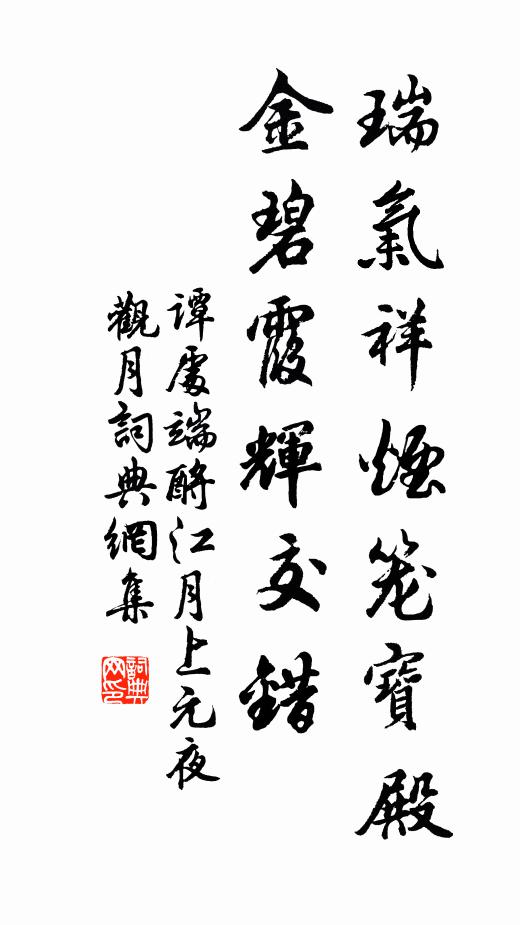 瑞氣祥煙笼寶殿
金碧霞輝交錯
谭處端酹江月上元夜
觀月詞典網集
詞典网印